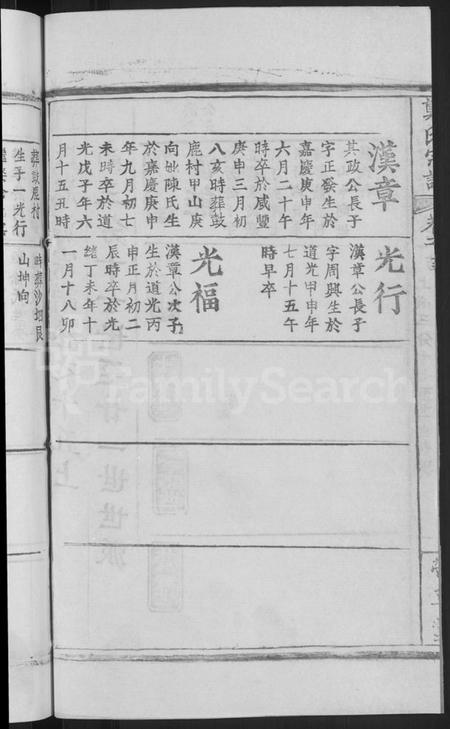 漢章
其政公長子
字正發生於
嘉慶庚申年
六月二十午
時卒於咸豐
庚申三月初
八亥時葬鼓
鹿村甲山庚
向妣陳氏生
於嘉慶庚申
年九月初七
未時卒於道
光戊子年六
月十五丑時
光行
漢章公長子
字周興生於
道光甲申年
七月十五午
時早卒
光福
漢章公次子
生於道光丙
申正月初二
辰時卒於光
緒丁未年十
一月十八卯
葬鼓鹿村
生子一光行
時葬沙坝艮
山坤向
FamilySearch